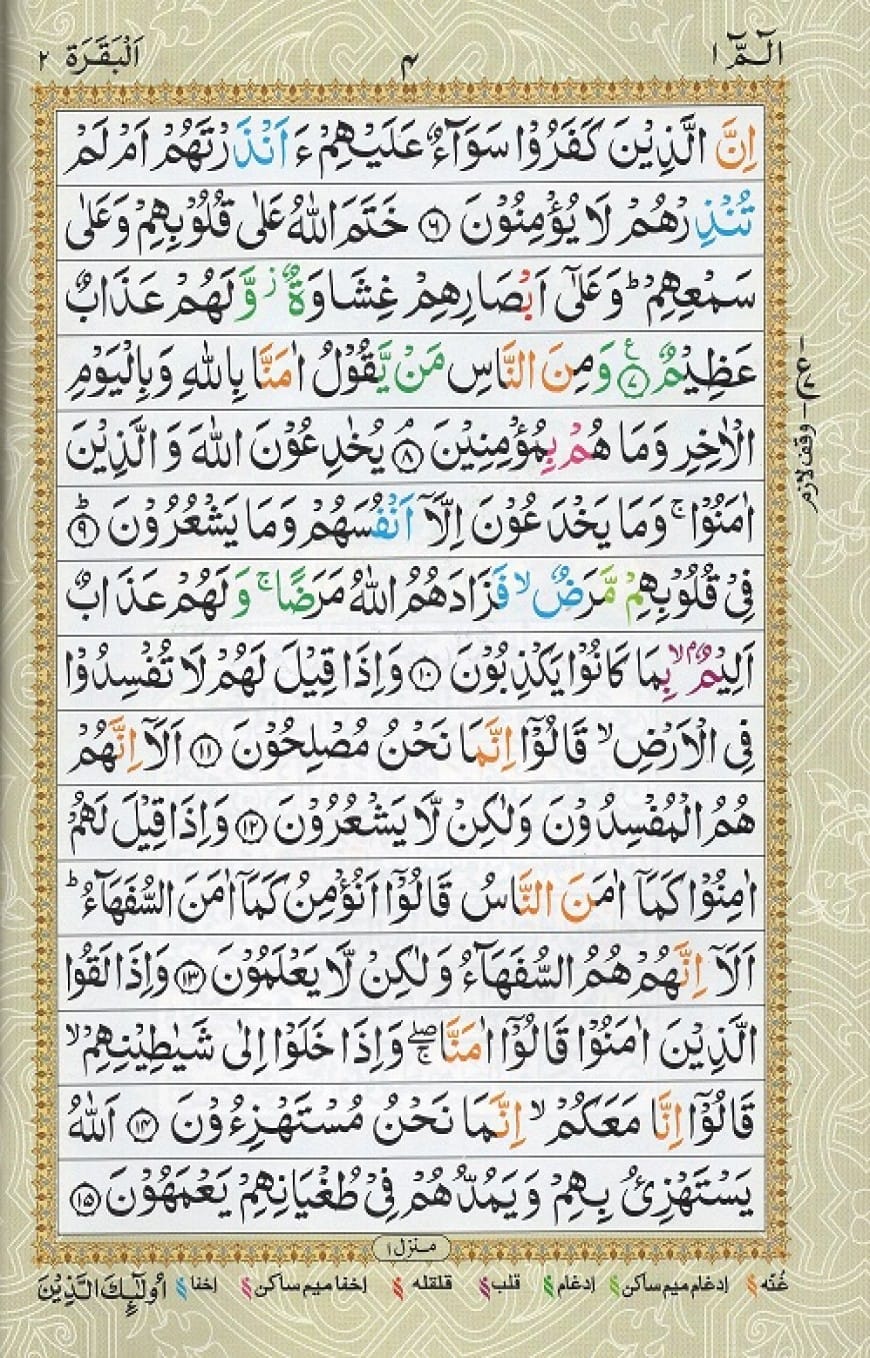 الٓمّٓ ١ ۴ اَلْبَقَرَة ٢
اِنَّ الَّذِيْنَ كَفَرُوْا سَوَآءٌ عَلَيْهِمْ ءَاَنْذَرْتَهُمْ اَمْ لَمْ
تُنْذِرْهُمْ لَا يُؤْمِنُوْنَ ۶ خَتَمَ اللّٰهُ عَلٰى قُلُوْبِهِمْ وَعَلٰى
سَمْعِهِمْ ؕ وَعَلٰٓى اَبْصَارِهِمْ غِشَاوَةٌ ز وَّلَهُمْ عَذَابٌ
عَظِيْمٌ ۷ ع وَمِنَ النَّاسِ مَنْ يَّقُوْلُ اٰمَنَّا بِاللّٰهِ وَبِالْيَوْمِ
الْاٰخِرِ وَمَا هُمْ بِمُؤْمِنِيْنَ ۘ ۸ يُخٰدِعُوْنَ اللّٰهَ وَالَّذِيْنَ
اٰمَنُوْا ۚ وَمَا يَخْدَعُوْنَ اِلَّآ اَنْفُسَهُمْ وَمَا يَشْعُرُوْنَ ؕ ۹
فِىْ قُلُوْبِهِمْ مَّرَضٌ ۙ فَزَادَهُمُ اللّٰهُ مَرَضًا ۚ وَلَهُمْ عَذَابٌ
اَلِيْمٌ ۙ بِمَا كَانُوْا يَكْذِبُوْنَ ۱۰ وَاِذَا قِيْلَ لَهُمْ لَا تُفْسِدُوْا
فِى الْاَرْضِ ۙ قَالُوْٓا اِنَّمَا نَحْنُ مُصْلِحُوْنَ ۱۱ اَلَآ اِنَّهُمْ
هُمُ الْمُفْسِدُوْنَ وَلٰكِنْ لَّا يَشْعُرُوْنَ ۱۲ وَاِذَا قِيْلَ لَهُمْ
اٰمِنُوْا كَمَآ اٰمَنَ النَّاسُ قَالُوْٓا اَنُؤْمِنُ كَمَآ اٰمَنَ السُّفَهَآءُ ؕ
اَلَآ اِنَّهُمْ هُمُ السُّفَهَآءُ وَلٰكِنْ لَّا يَعْلَمُوْنَ ۱۳ وَاِذَا لَقُوا
الَّذِيْنَ اٰمَنُوْا قَالُوْٓا اٰمَنَّا ۖۚ وَاِذَا خَلَوْا اِلٰى شَيٰطِيْنِهِمْ ۙ
قَالُوْٓا اِنَّا مَعَكُمْ ۙ اِنَّمَا نَحْنُ مُسْتَهْزِءُوْنَ ۱۴ اَللّٰهُ
يَسْتَهْزِئُ بِهِمْ وَيَمُدُّهُمْ فِىْ طُغْيَانِهِمْ يَعْمَهُوْنَ ۱۵
وقف لازم
منزل ۱
غُنّه ادغام میم ساکن ادغام قلب قلقله اخفا میم ساکن اخفا اُولٰٓئِكَ الَّذِيْنَ